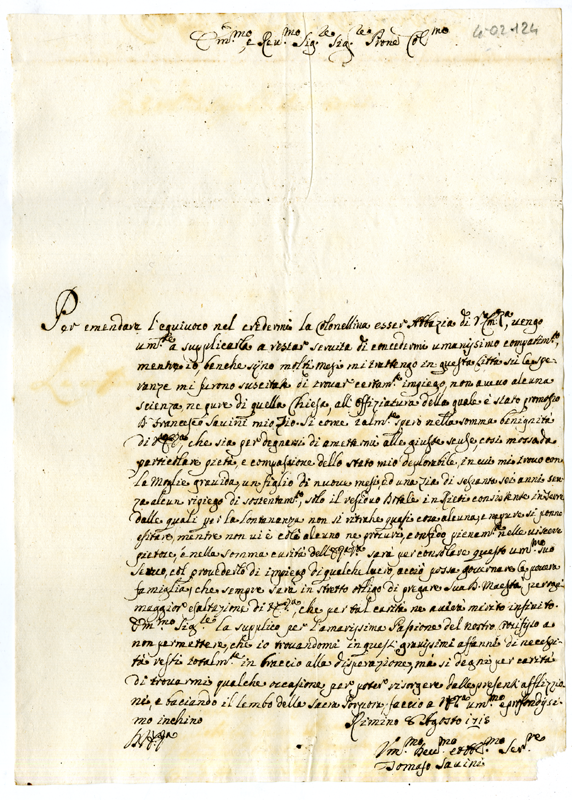 4-02-124
Em.mo e Reu.mo Sig.re Sig.re Prone Col.mo
Per emendare l'equiuoco nel credermi la Colonellina esser Abbazia di V. Em.za, uengo
um.te a supplicarla a restar seruita di concedermi umanissimo compatim.to
mentre io benche siino molti mesi mi trattengo in questa Città sù le spe-
ranze mi furono suscitate di trouar certam.te impiego, non aueuo alcuna
scienza ne pure di quella Chiesa, all'Offiziatura della quale è stato promosso
D. Francesco Sauini mio Zio. Si come talm.te spero nella somma benignità
di che sia per degnarsi di ametter mi alle giuste scuse, così mossa da
particolare pietà, e compassione dello stato mio deplorabile, in cui mi trouo con
la Moglie grauida, un figlio di nuoue mesi, ed una Zia di sessanta sei anni sen-
za alcun rifugio di sostentam.to, solo il residuo in
dalle quali per la lontananza non si ritrahe quasi cosa alcuna, e ne pure si ponno
esitare, mentre non ui è colà alcuno ne procuri, confido pienam.te nelle uiscere
pietose, e nella somma carità dell' sarà per consolare questo um.mo suo
Seruo, col prouederlo di impiego di qualche lucro, acciò possa gouernare la pouera
famiglia, che sempre sarà in stretto obligo di pregare Sua D. Maestà per ogni
maggior esaltazione di che per tal carità ne auerà merito infinito.
Em.mo Sig.re la supplico per l'amarissima Passione del nostro Crocifisso a
non permettere, che io trouandomi in questi grauissimi affanni di necessi-
tà resti totalm.te in braccio alla disperazione, ma si degni per carità
di trouarmi qualche occasione per poter risorgere dalle presenti afflizzio-
ni, e baciando il lembo della Sacra Porpora, faccio a um.mo e profondissi-
mo inchino Rimino 8 Agosto 1715
Um.mo Deu.mo et Obl.mo Ser.re
Tomaso Sauini